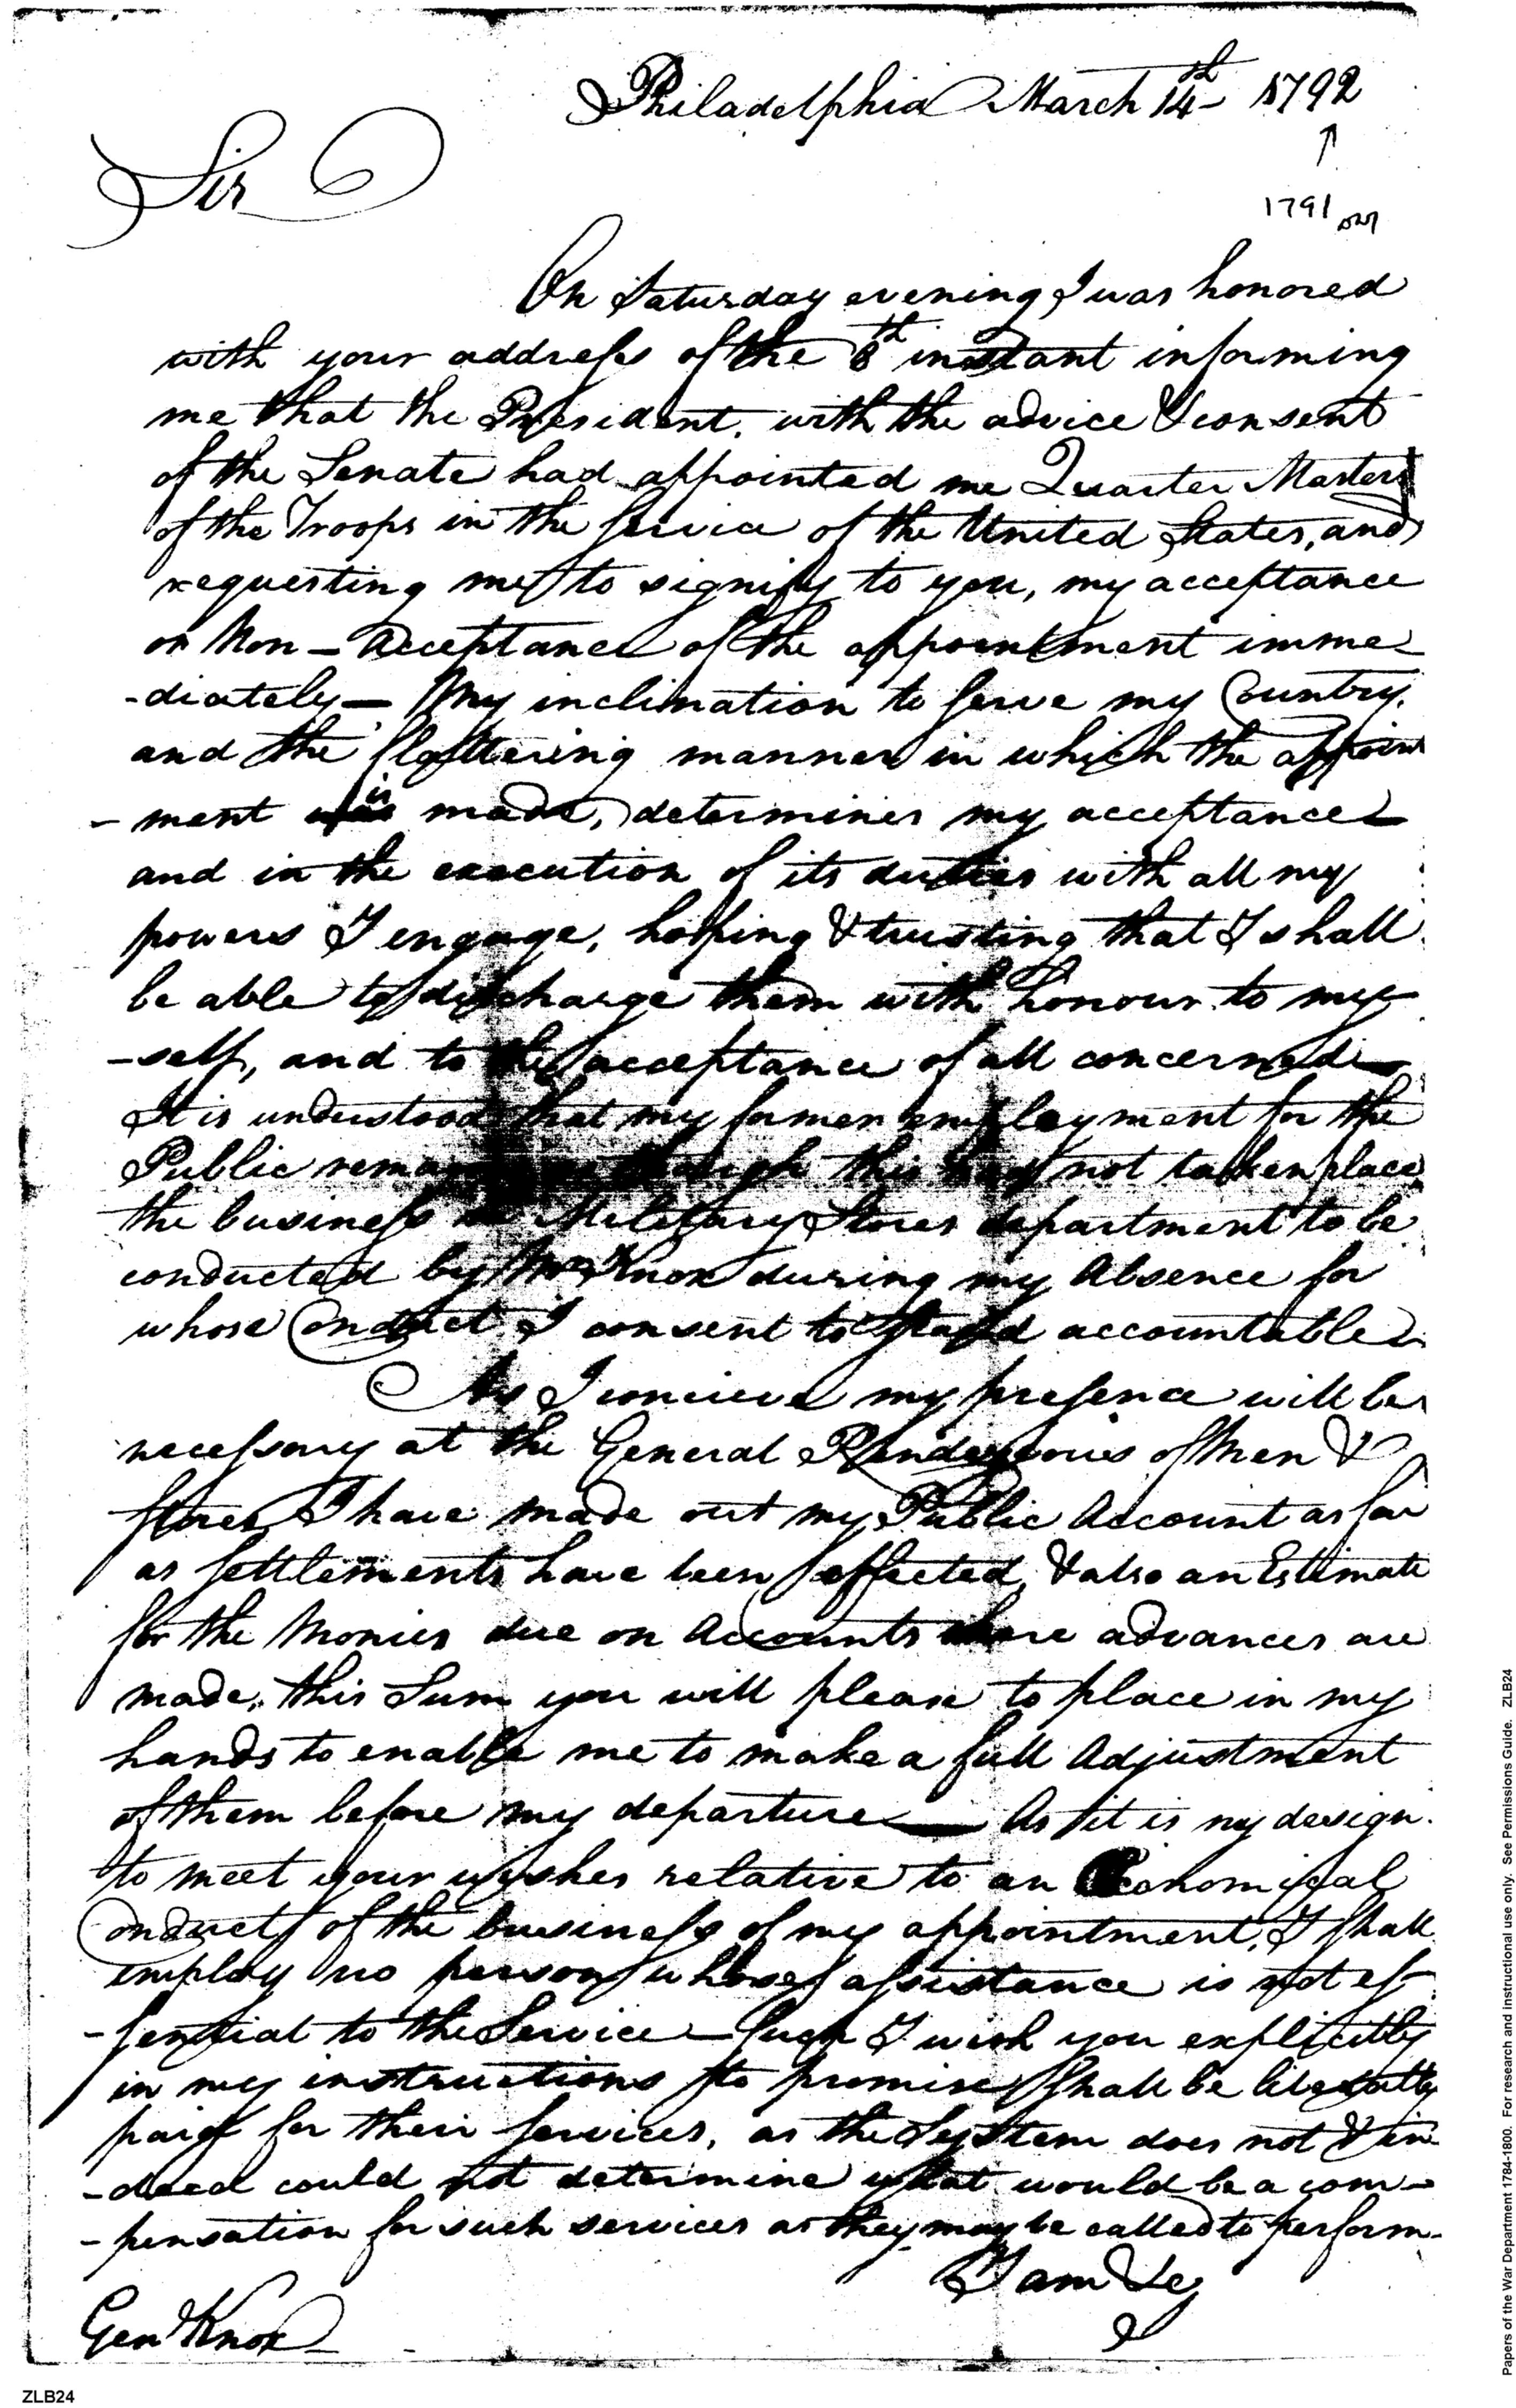 Philadelphia March 14th 1792
↑
1791
Sir
On Saturday evening I was honored
with your address of the 8th instant informing
me that the President. with the advice & consent
of the Senate had appointed me Quarter Master
of the Troops in the service of the United States, and
requesting me to signify to you, my acceptance
or Non-Acceptance of the appointment imme
-diately — My inclination to serve my Country.
and the flattering manner in which the appoint
-ment is made, determines my acceptance
and in the execution of its duties with all my
powers I engage, hoping & trusting that I shall
be able to discharge them with honour to my
-self, and to the acceptance of all concerned
It is understood that my former employment for the
Public though this had not taken place
the business Military Stores department to be
conducted by Mr Knox during my Absence for
whose Conduct I consent to stand accountable
As I concieve my presence will be
necessary at the General Rendezvous of Men &
Stores I have made out my Public Account as far
as settlements have been effected, & also an Estimate
for the Monies due on Accounts where advances are
made, this Sum you will please to place in my
hands to enable me to make a full Adjustment
of them before my departure — As it is my design
to meet your wishes relative to an Economical
Conduct of the business of my appointment, I shall
employ no person whose assistance is not es
-sential to the Service — Such I wish you explicitly
in my instructions to promise shall be liberally
paid for their services, as the System does not & in
-deed could not determine what would be a com-
-pensation for such services as they may be called to perform-
I am &c
Genl Knox
Papers of the War Department 1784-1800. For research and instructional use only. See Permissions Guide. ZLB24
ZLB24